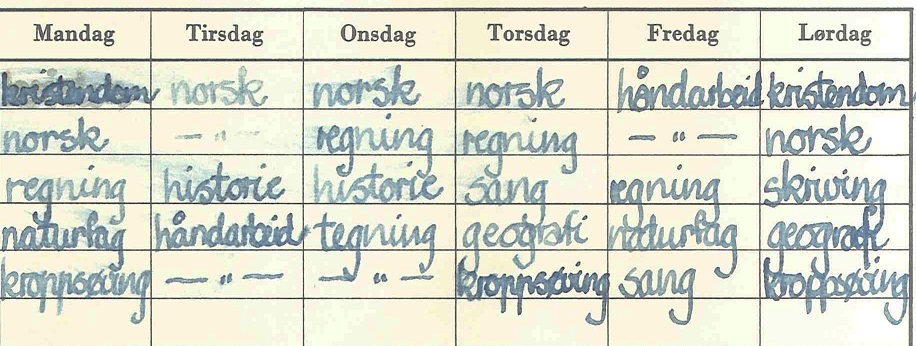 Mandag Tirsdag Onsdag Torsdag Fredag Lørdag
kristendom norsk norsk norsk håndarbeid kristendom
norsk — " — regning regning — " — norsk
regning historie historie sang regning skriving
naturfag håndarbeid tegning geografi naturfag geografi
kroppsøving — " — — " — kroppsøving sang kroppsøving